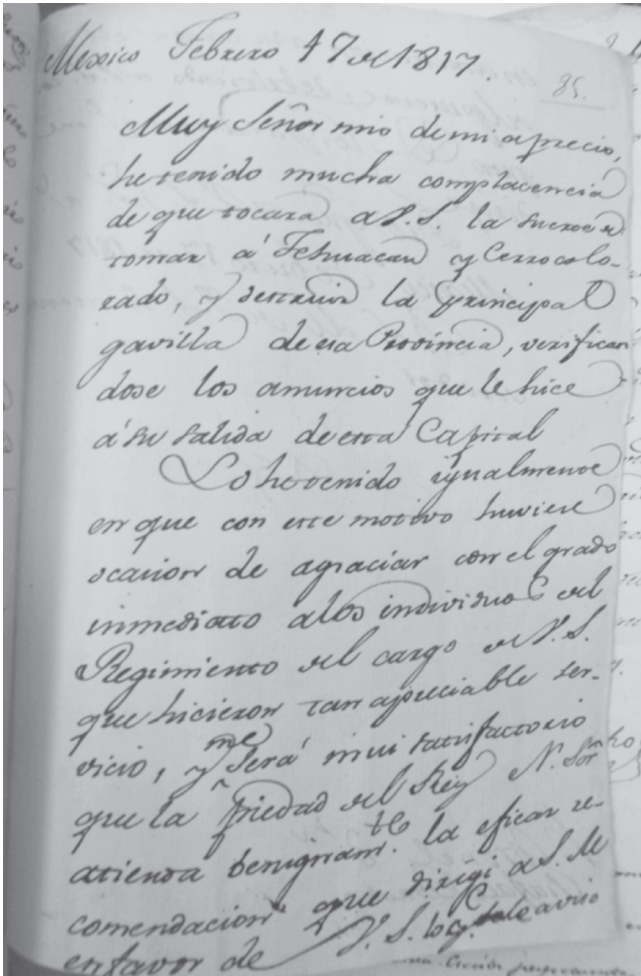 Mexico Febrero 17 de 1817.
85.
Muy Señor mio de mi aprecio,
he tenido mucha complacencia
de que tocara a V.S. la suerte de
tomar á Tehuacan y Cerro colo-
rado, y destruir la principal
gavilla de esa Provincia, verifican
dose los anuncios que le hice
á su salida de esta Capital
Lo he tenido igualmente
en que con este motivo huviese
ocasion de agraciar con el grado
inmediato a los individuos del
Regimiento del cargo de V.S.
que hicieron tan apreciable ser-
vicio, y me Será mui satisfactorio
que la piedad del Rey N. Sor
atienda benignamte. la eficaz re-
comendacion que dirigi a S. M
en favor de V.S. lo q. le aviso